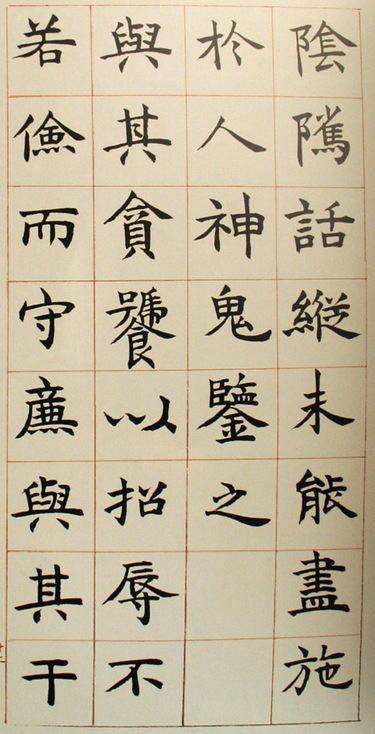 陰隲話縦未能盡施
於人神鬼鑒之
與其貪饕以招辱不
若儉而守亷與其干